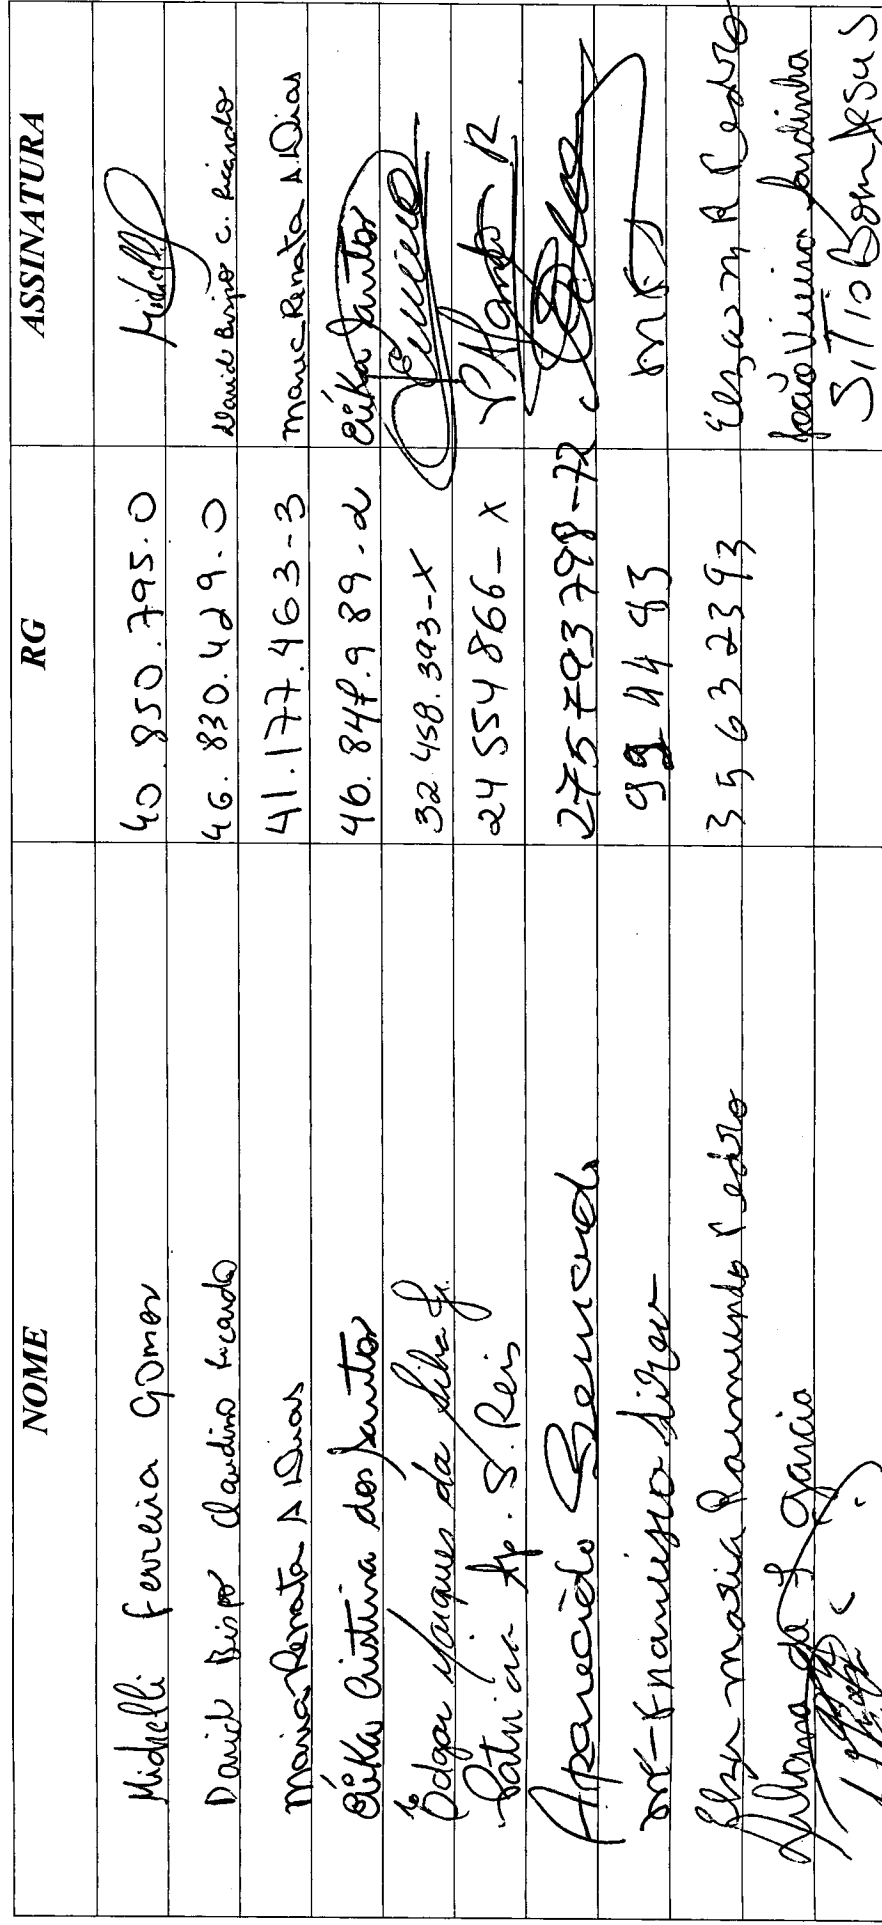 NOME RG ASSINATURA
Michelli Ferreira Gomes 40.850.795.0 Michelli
David Bispo Claudino Ricardo 46.830.429.0 David Bispo C. Ricardo
Maria Renata A Dias 41.177.463-3 Maria Renata A. Dias
Érika Cristina dos Santos 46.847.989-2 Érika Santos
Edgar Marques da Silva Jr. 32.458.393-X
Patricia Ap. S. Reis 24 554 866-X
Aparecido Bernardo 275793798-72
Francisco 99 44 83
Elza maria Raimundo Pedro 35632393 Elza m R Pedro
Garcia João Vieira Jardinha
SITIO Bom JESUS